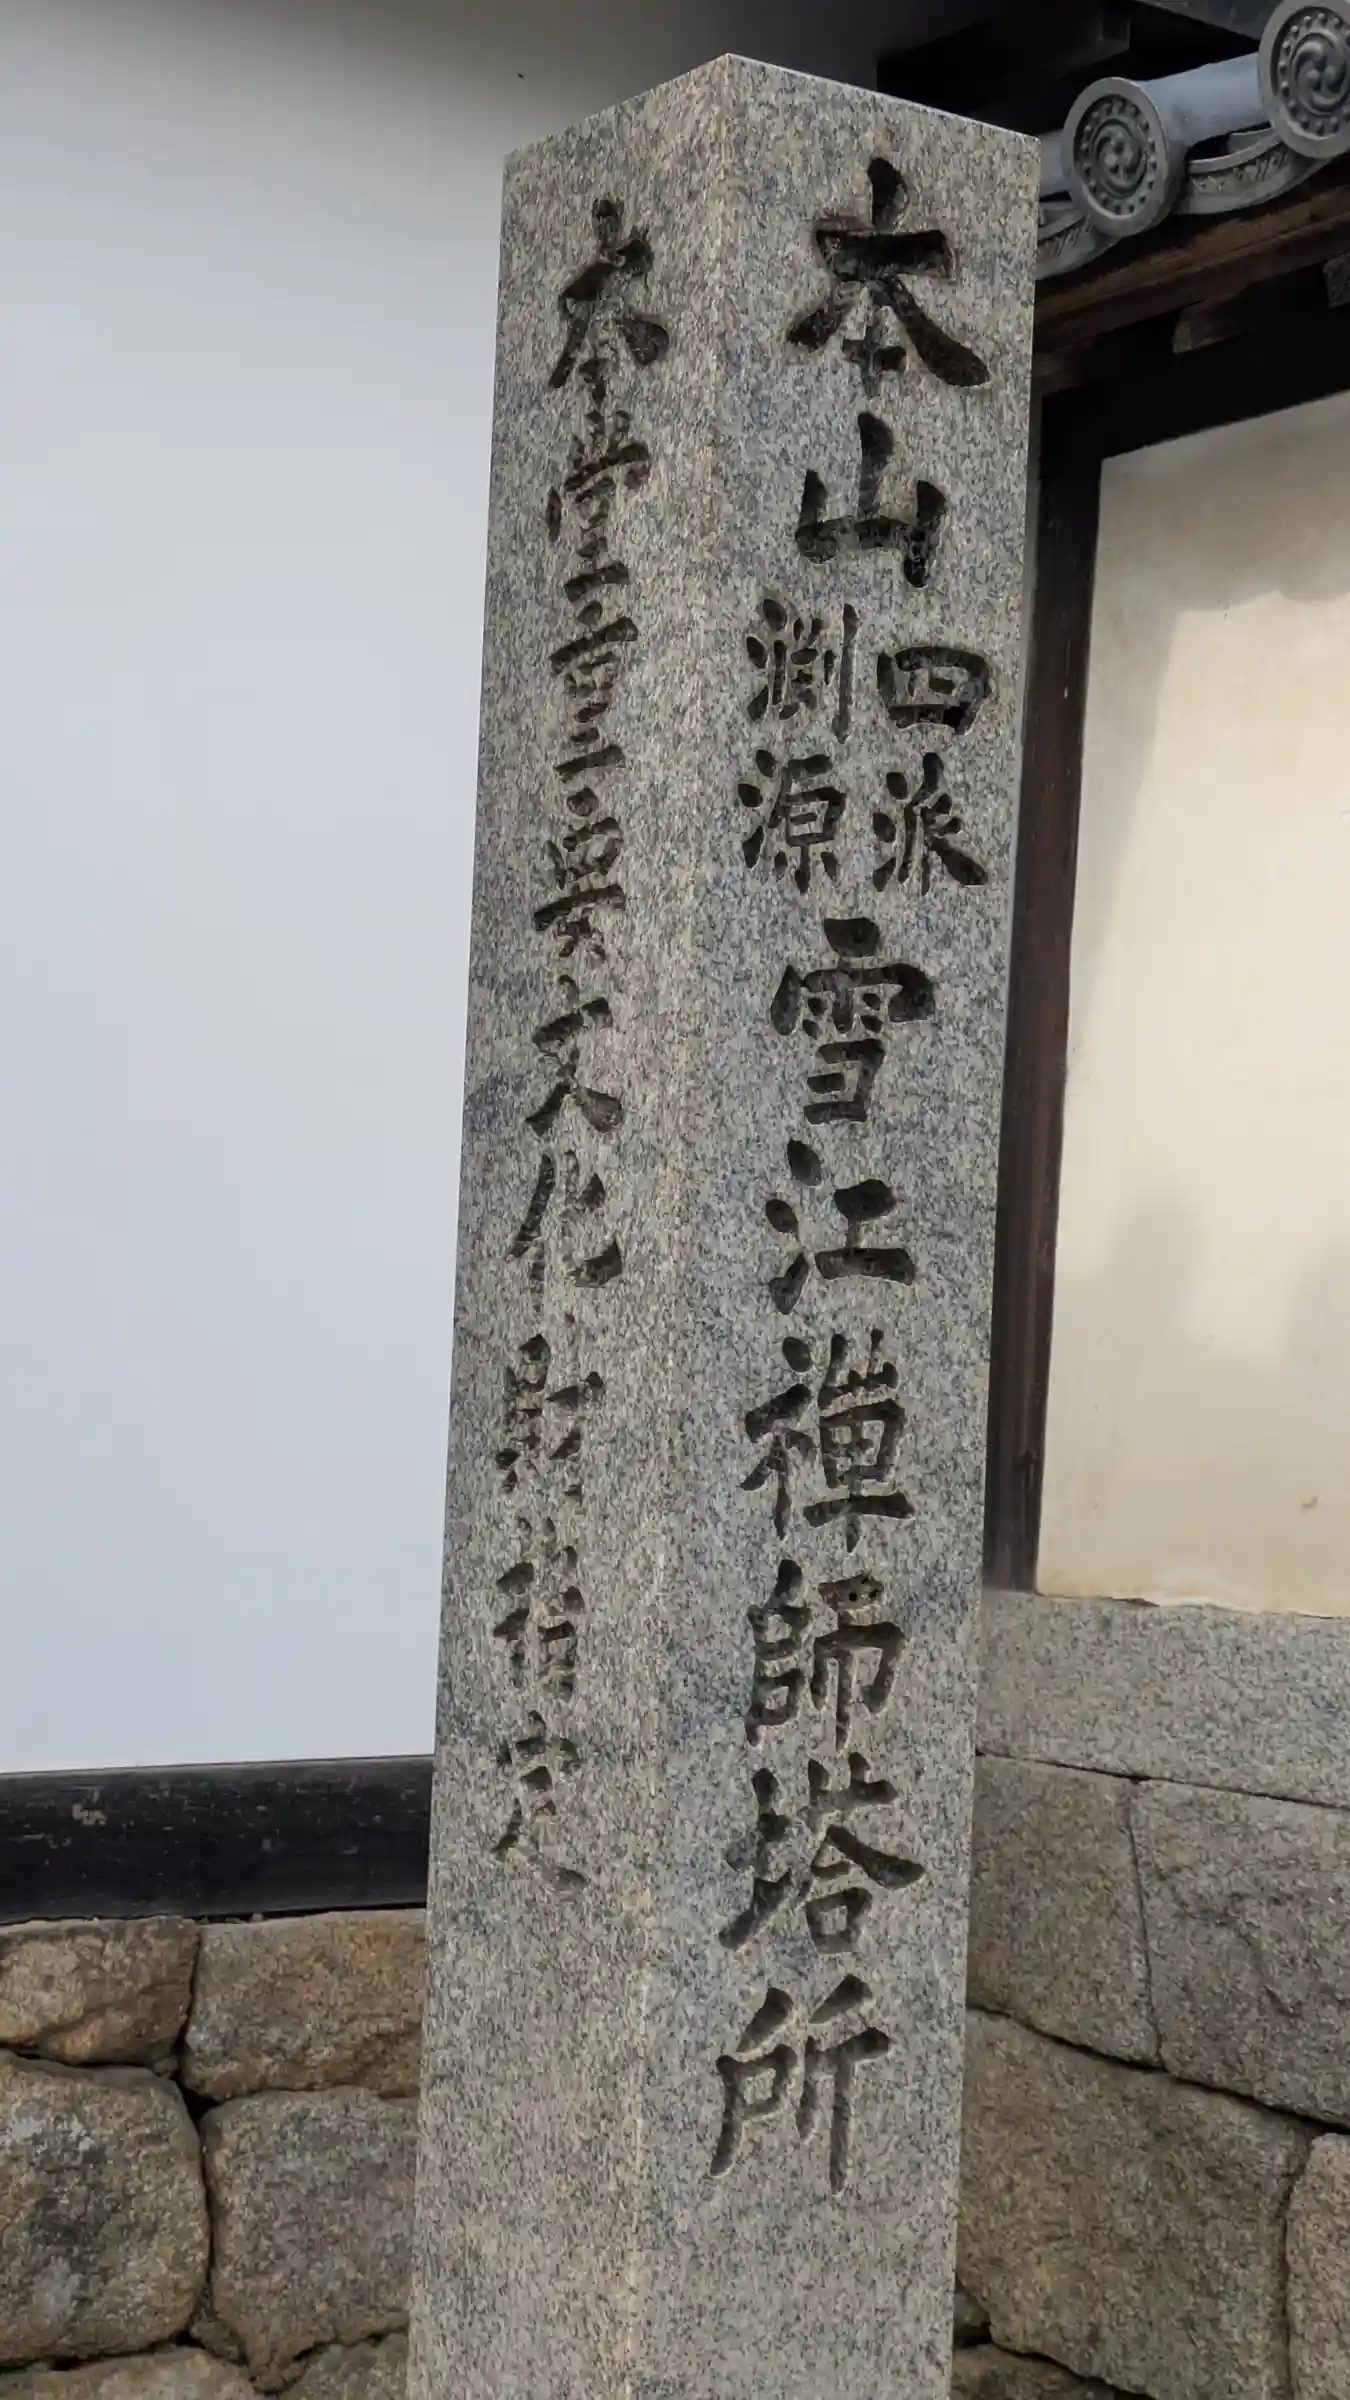 本山
四派
渕源
雪江禅師塔所
本堂重要文化財指定